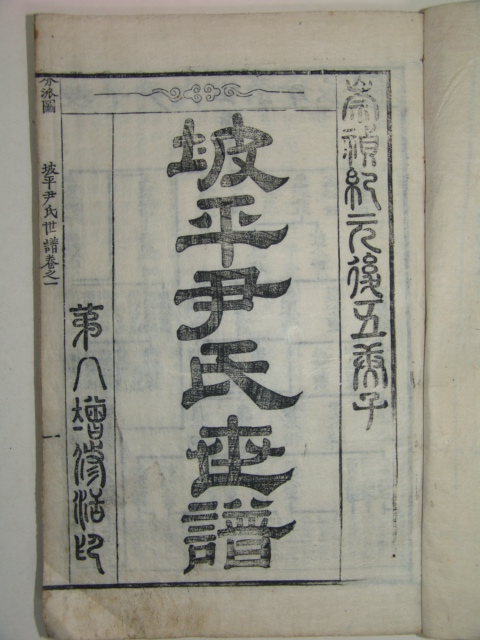 崇禎紀元後五庚子
坡平尹氏世譜
第八增修活印
分派圖
坡平尹氏世譜卷之一
一